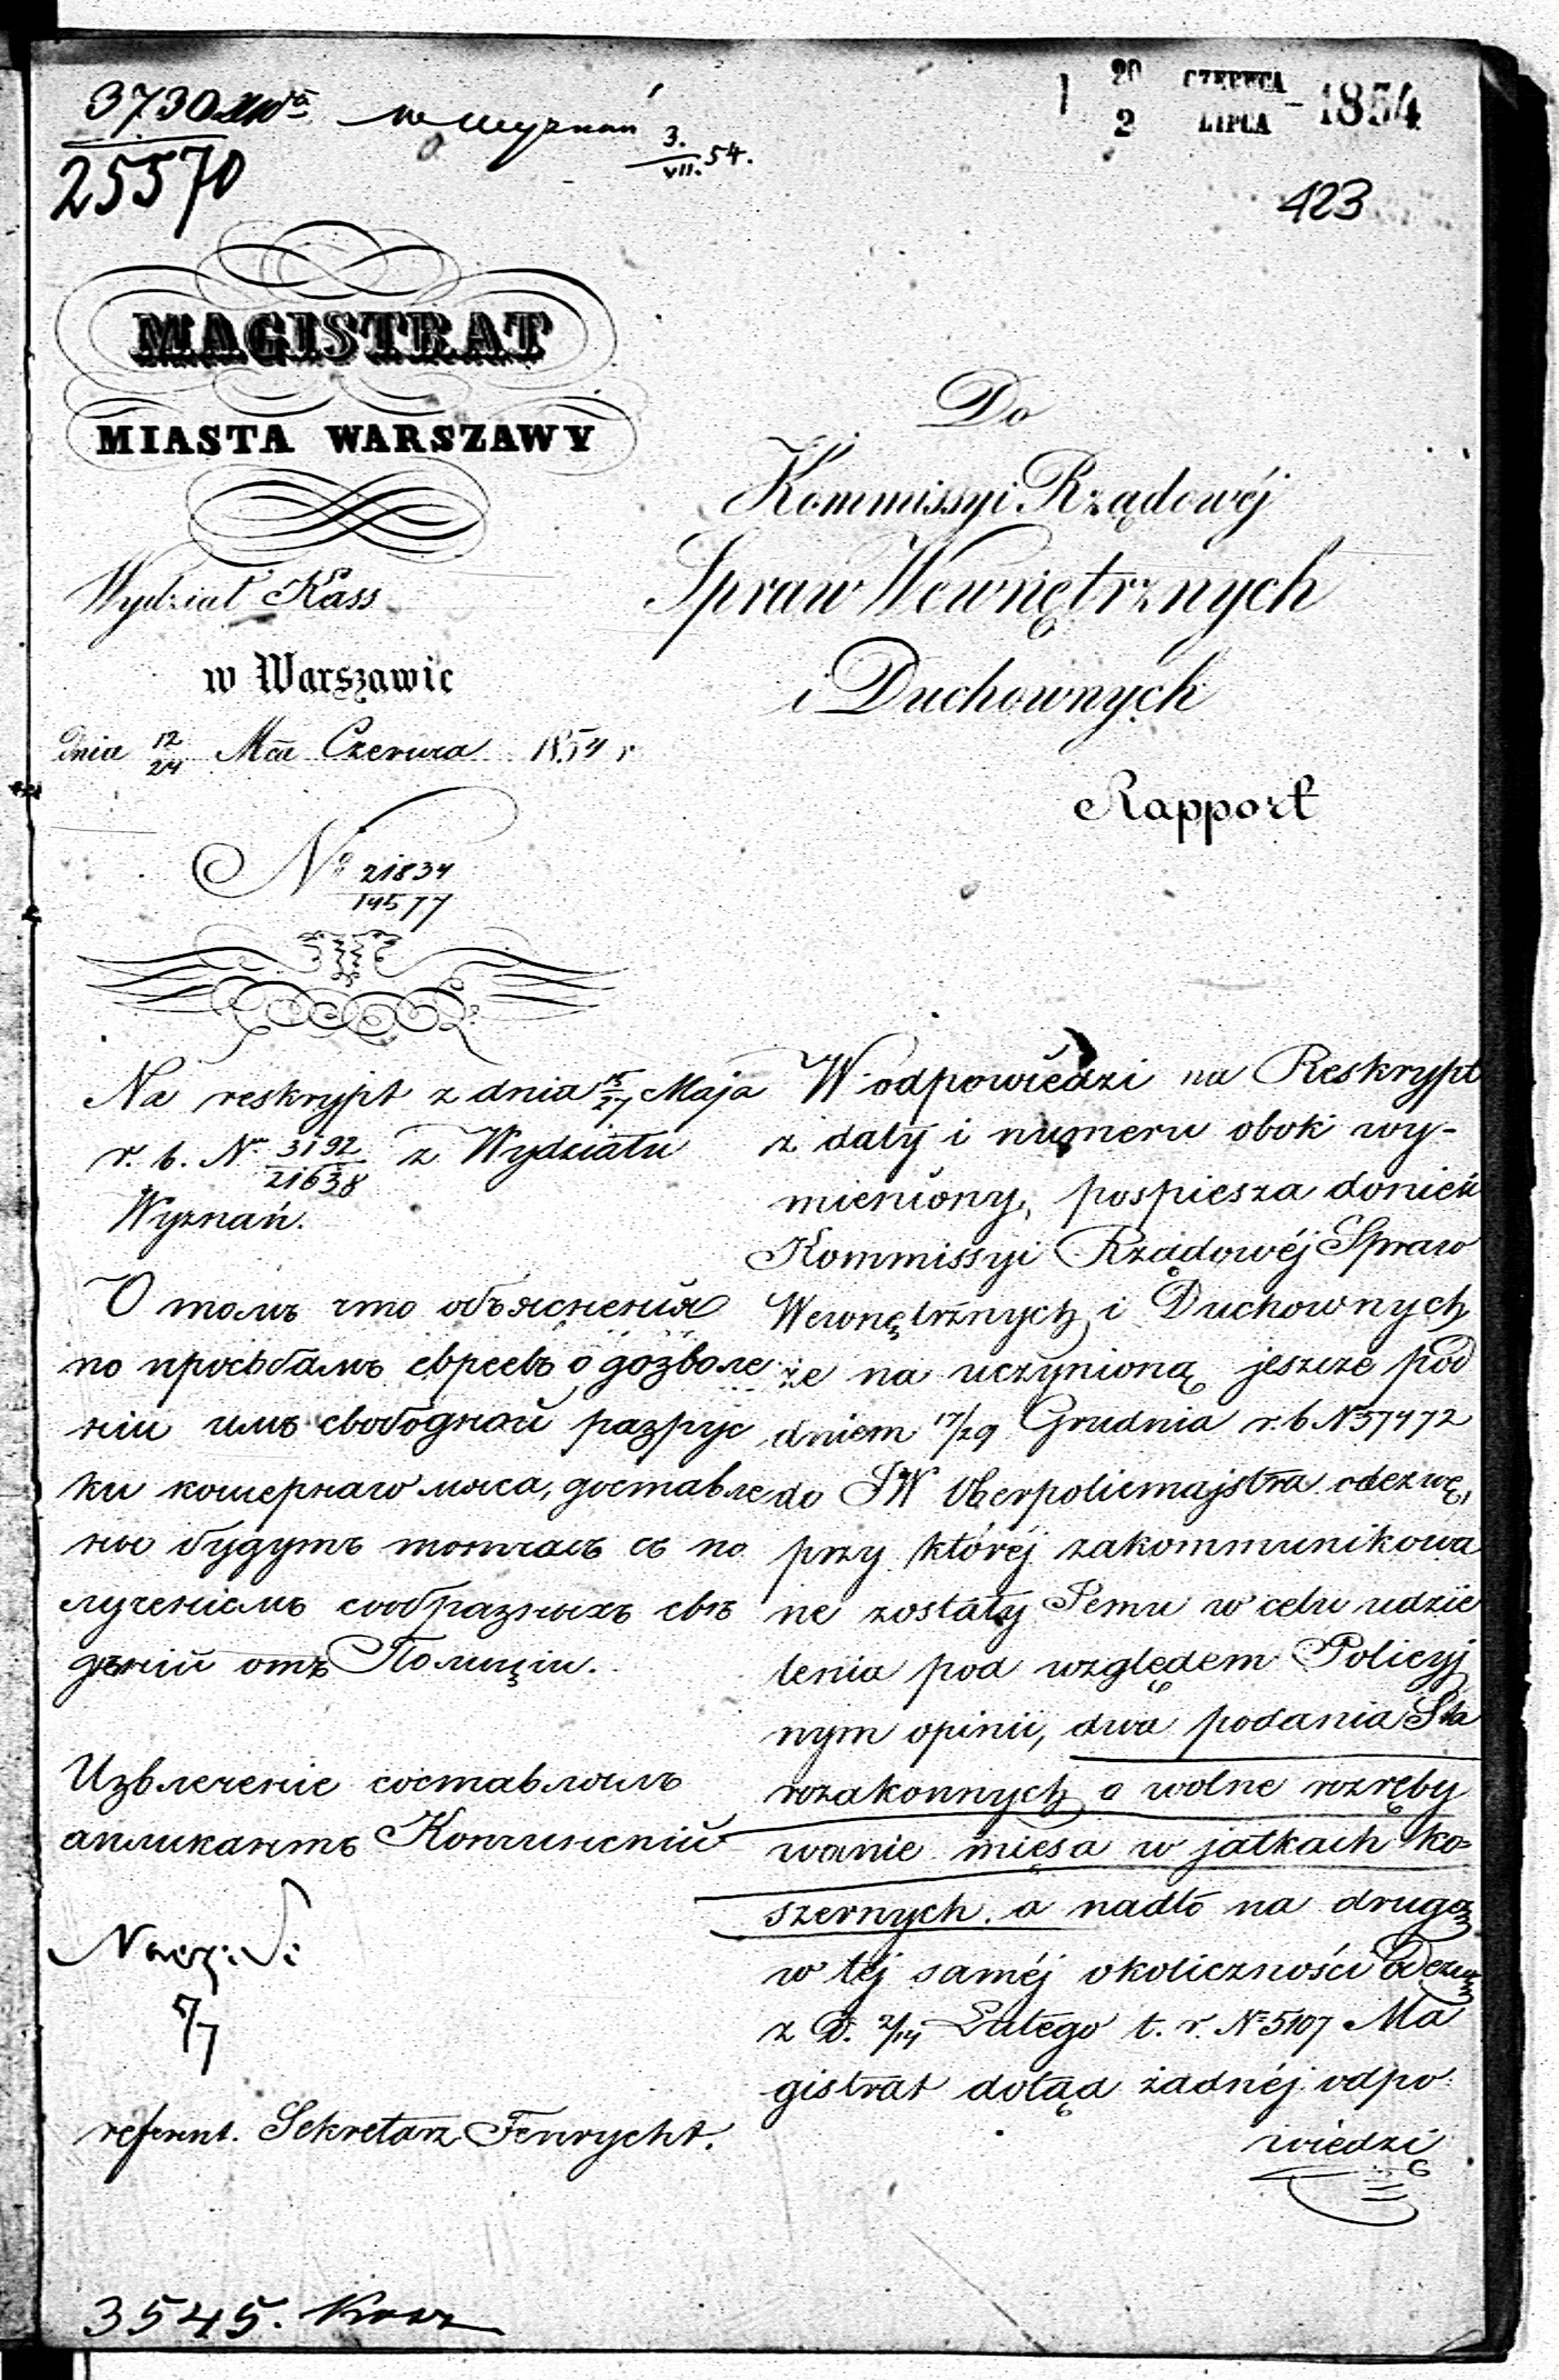 3730
25570
Wyznań 3./VII. 54.
20 CZERWCA
2 LIPCA
1854
423
MAGISTRAT
MIASTA WARSZAWY
Wydział Kass
w Warszawie
dnia 12/24 Mca Czerwca 1854 r
No 21834/14577
Do
Kommissyi Rządowéj
Spraw Wewnętrznych
i Duchownych
Rapport
Na reskrypt z dnia 15/27 Maja
r. b. Nr 3192/21638 z Wydziału
Wyznań.
О томъ что объясненія
по просьбамъ евреевъ о дозволе
ніи имъ свободной разруб
ки кошернаго мяса, доставле
ны будутъ тотчасъ съ по
лученіемъ сообразныхъ свѣ
дѣній отъ Полиціи.
Извлеченіе составлялъ
апликантъ
referent. Sekretarz Fenrycht.
3545.
W odpowiedzi na Reskrypt
z daty i numeru obok wy-
mieniony, pospiesza donieść
Kommissyi Rządowéj Spraw
Wewnętrznych i Duchownych
że na uczynioną jeszcze pod
dniem 17/29 Grudnia r. b N 37472
do JW Oberpolicmajstra odezwę,
przy któréj zakommunikowa
ne zostały Jemu w celu udzie
lenia pod względem Policyj
nym opinii, dwa podania Sta
rozakonnych o wolne rozręby
wanie mięsa w jatkach ko-
szernych, a nadto na drugą
w téj saméj okoliczności Odezwę
z D. 2/14 Lutego t. r. No 5107 Ma
gistrat dotąd żadnéj odpo
wiedzi